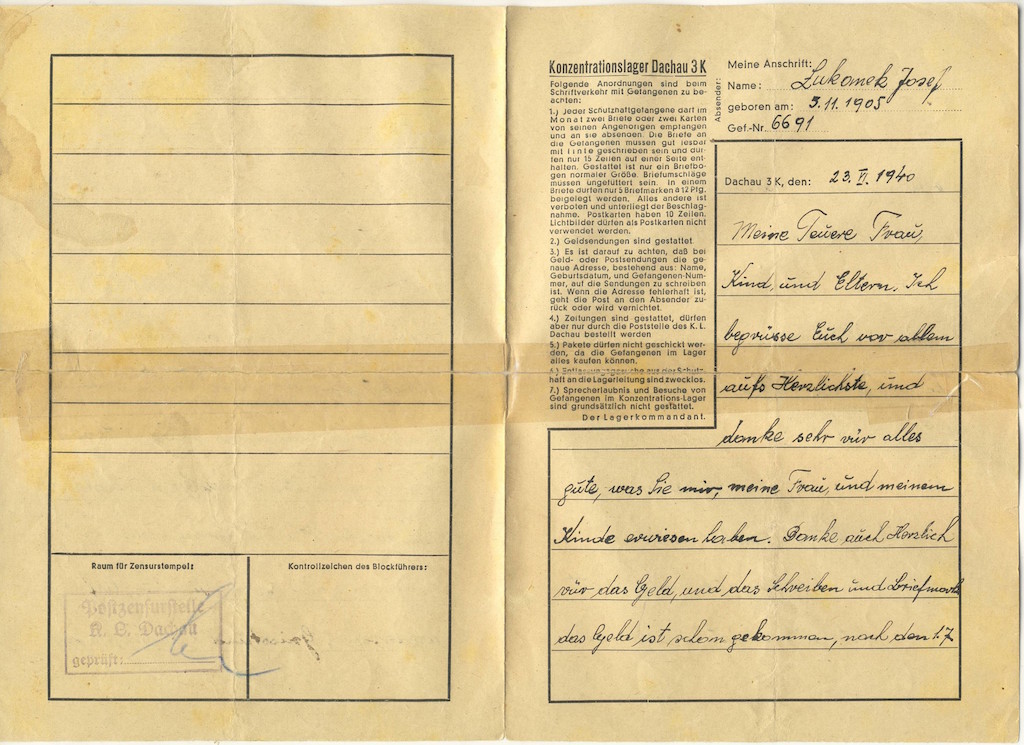 Raum für Zensurstempel:
Kontrollzeichen des Blockführers:
Postzensurstelle
K. L. Dachau
geprüft:
Konzentrationslager Dachau 3 K
Folgende Anordnungen sind beim
Schriftverkehr mit Gefangenen zu be-
achten:
1.) Jeder Schutzhaftgefangene darf im
Monat zwei Briefe oder zwei Karten
von seinen Angehörigen empfangen
und an sie absenden. Die Briefe an
die Gefangenen müssen gut lesbar
mit Tinte geschrieben sein und dür-
fen nur 15 Zeilen auf einer Seite ent-
halten. Gestattet ist nur ein Briefbo-
gen normaler Größe. Briefumschläge
müssen ungefüttert sein. In einem
Briefe dürfen nur 5 Briefmarken à 12 Pfg.
beigelegt werden. Alles andere ist
verboten und unterliegt der Beschlag-
nahme. Postkarten haben 10 Zeilen.
Lichtbilder dürfen als Postkarten nicht
verwendet werden.
2.) Geldsendungen sind gestattet
3.) Es ist darauf zu achten, daß bei
Geld- oder Postsendungen die ge-
naue Adresse, bestehend aus: Name,
Geburtsdatum, und Gefangenen-Num-
mer, auf die Sendungen zu schreiben
ist. Wenn die Adresse fehlerhaft ist,
geht die Post an den Absender zu-
rück oder wird vernichtet.
4.) Zeitungen sind gestattet, dürfen
aber nur durch die Poststelle des K. L.
Dachau bestellt werden
5.) Pakete dürfen nicht geschickt wer-
den, da die Gefangenen im Lager
alles kaufen können.
6.) Entlassungsgesuche aus der Schutz-
haft an die Lagerleitung sind zwecklos.
7.) Sprecherlaubnis und Besuche von
Gefangenen im Konzentrations-Lager
sind grundsätzlich nicht gestattet.
Der Lagerkommandant.
Absender:
Meine Anschrift:
Name: Lukanek Josef
geboren am: 5.11.1905
Gef.-Nr. 6691
Dachau 3 K, den: 23. VI. 1940
Meine Teuere Frau,
Kind, und Eltern. Ich
begrüsse Euch vor allem
aufs Herzlichste, und
danke sehr vür alles
gute, was Sie mir, meine Frau, und meinem
Kinde erwiesen haben. Danke auch Herzlich
vür das Geld, und das Schreiben und Briefmark
das Geld ist schon gekommen, noch den 1.7